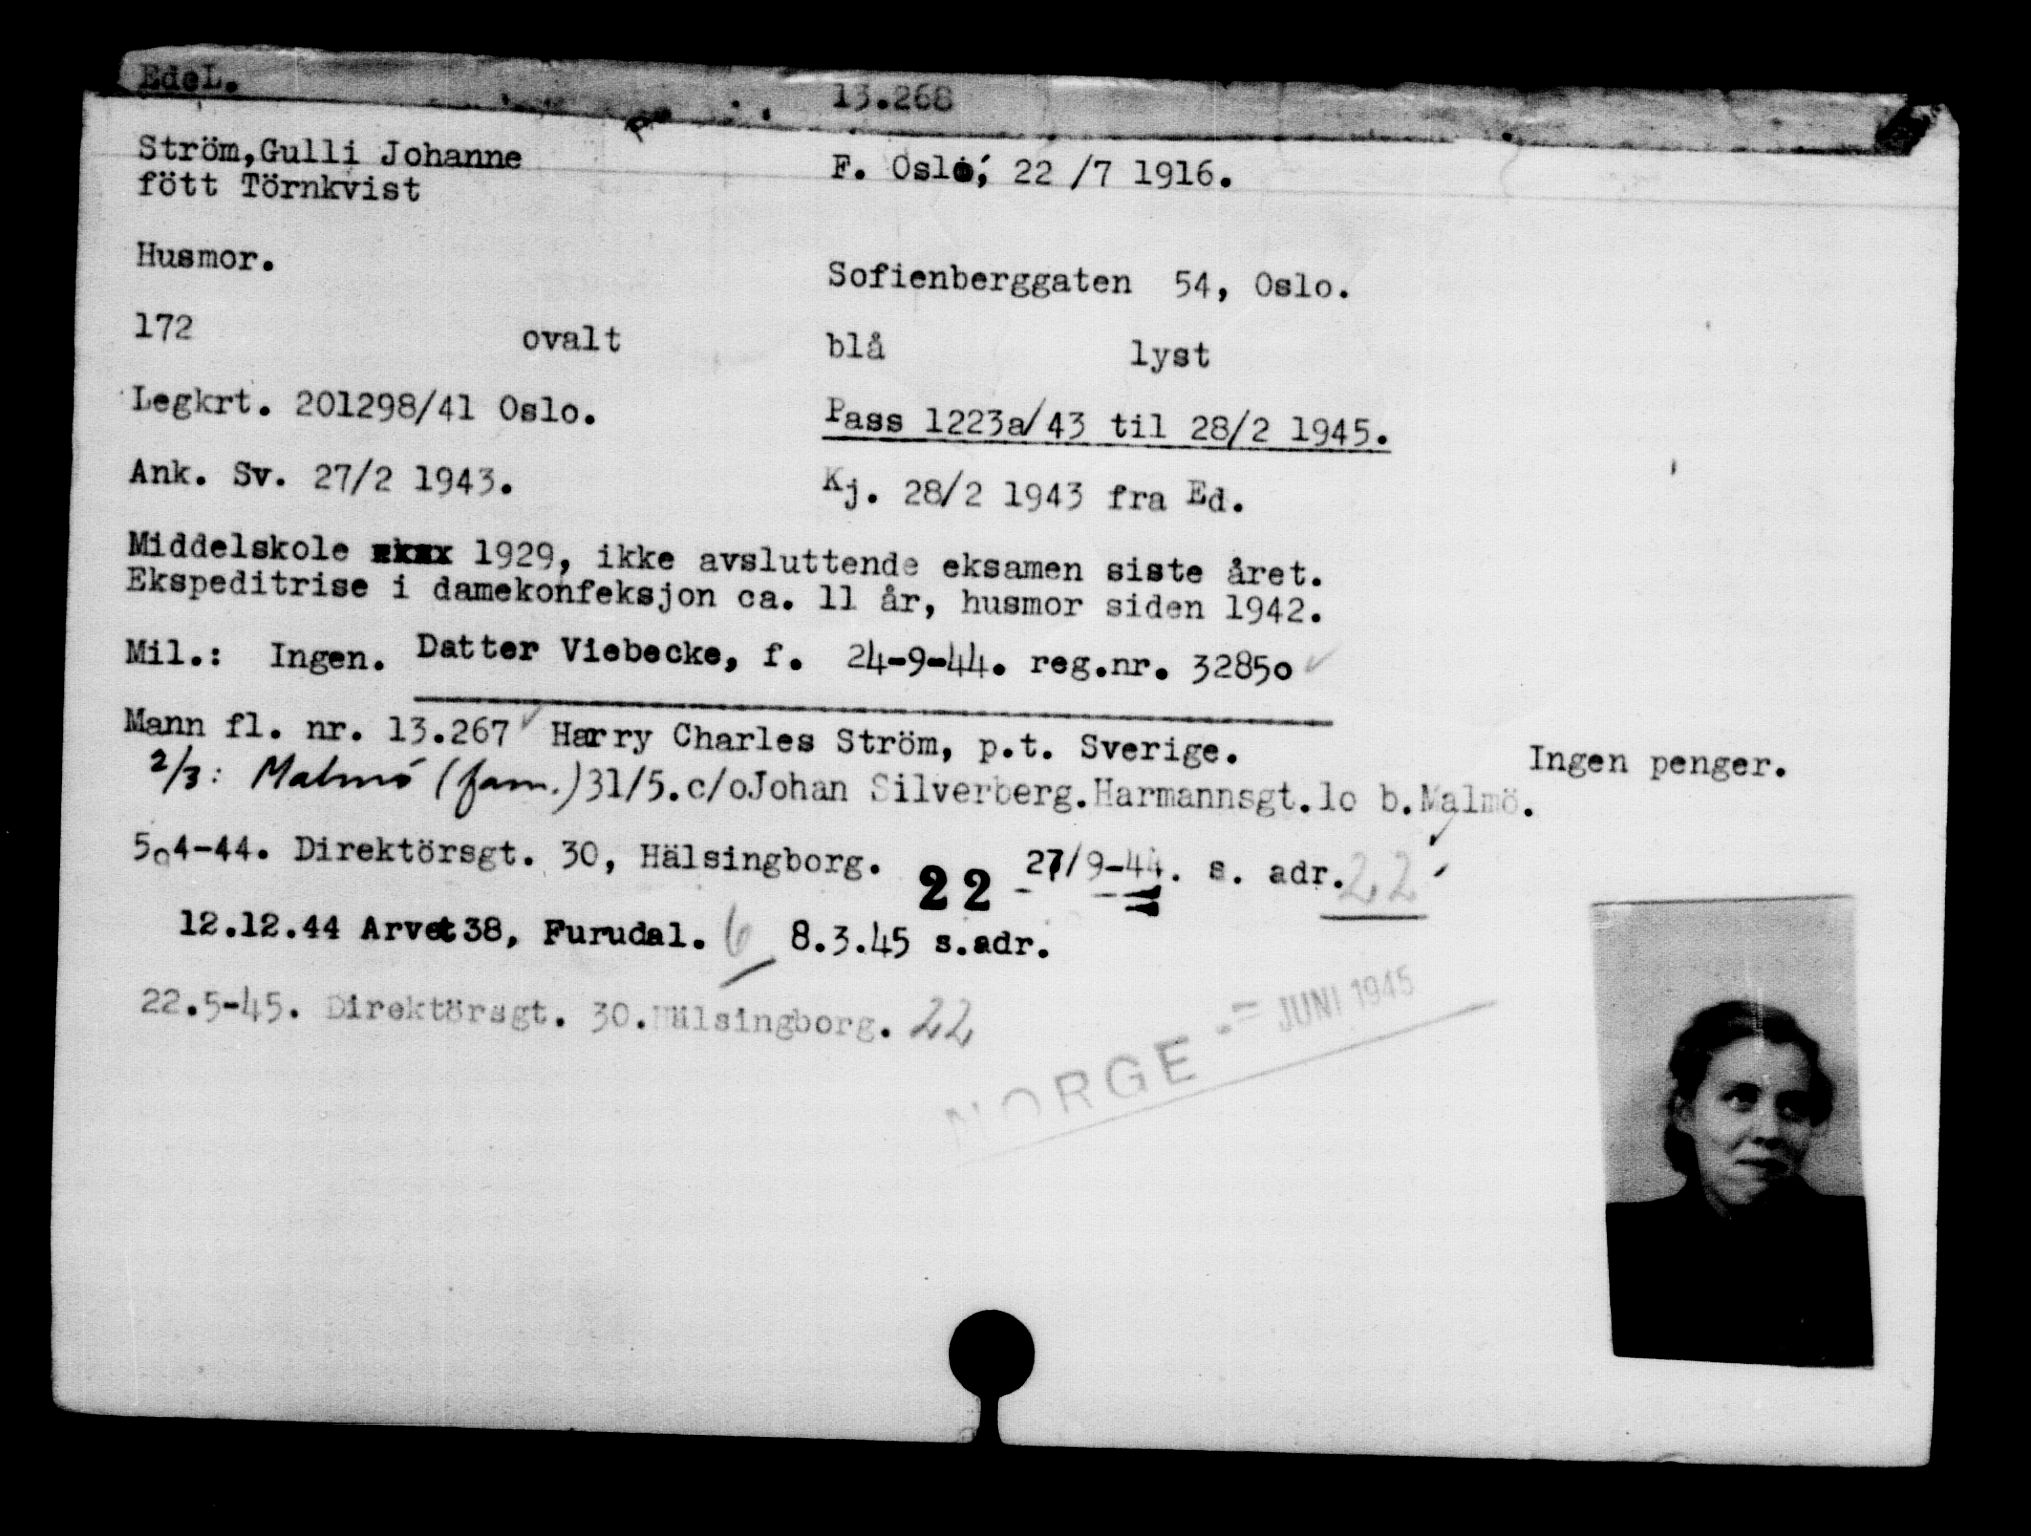 EdeL. 13.268
Ström,Gulli Johanne F. Oslo, 22 /7 1916.
fött Törnkvist
Husmor. Sofienberggaten 54, Oslo.
172 ovalt blå lyst
Legkrt. 201298/41 Oslo. Pass 1223a/43 til 28/2 1945.
Ank. Sv. 27/2 1943. Kj. 28/2 1943 fra Ed.
Middelskole 1929, ikke avsluttende eksamen siste året.
Ekspeditrise i damekonfeksjon ca. 11 år, husmor siden 1942.
Mil.: Ingen. Datter Viebecke, f. 24-9-44. reg.nr. 3285o
Mann fl. nr. 13.267 Harry Charles Ström, p.t. Sverige. Ingen penger.
2/3: Malmö (fam.) 31/5.c/oJohan Silverberg.Harmannsgt.lo b.Malmö.
5.4-44. Direktörsgt. 30, Hälsingborg. 22 27/9-44. s. adr. 22
12.12.44 Arvet 38, Furudal. 6 8.3.45 s.adr.
22.5-45. Direktörsgt. 30.Hälsingborg. 22
NORGE JUNI 1945